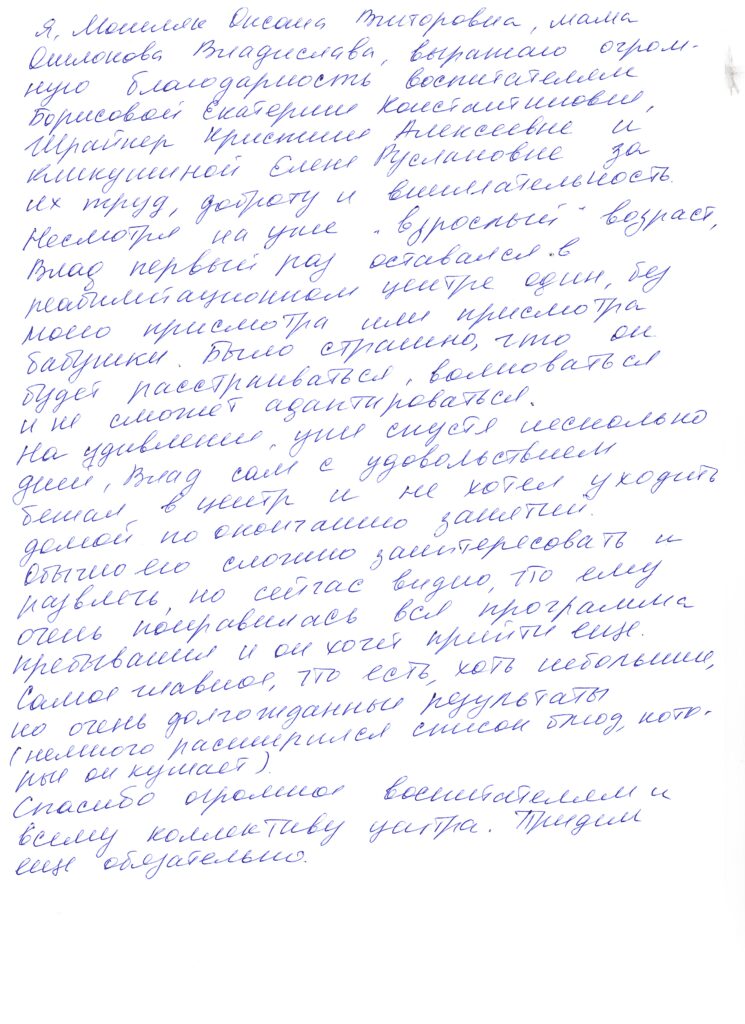 Я, Мошляк Оксана Викторовна, мама
Ошлокова Владислава, выражаю огром-
ную благодарность воспитателям
Борисовой Екатерине Константиновне,
Шрайнер Кристине Алексеевне и
Кликушиной Елене Руслановне за
их труд, доброту и внимательность.
Несмотря на уже "взрослый" возраст,
Влад первый раз оставался в
реабилитационном центре один, без
моего присмотра или присмотра
бабушки. Было страшно, что он
будет расстраиваться, волноваться
и не сможет адаптироваться.
На удивление, уже спустя несколько
дней, Влад сам с удовольствием
бежал в центр и не хотел уходить
домой по окончанию занятий.
Обычно его сложно заинтересовать и
развлечь, но сейчас видно, что ему
очень понравилась вся программа
пребывания и он хочет прийти еще.
Самое главное, что есть, хоть небольшие,
но очень долгожданные результаты
(немного расширился список блюд, кото-
рые он кушает).
Спасибо огромное воспитателям и
всему коллективу центра. Придем
еще обязательно.